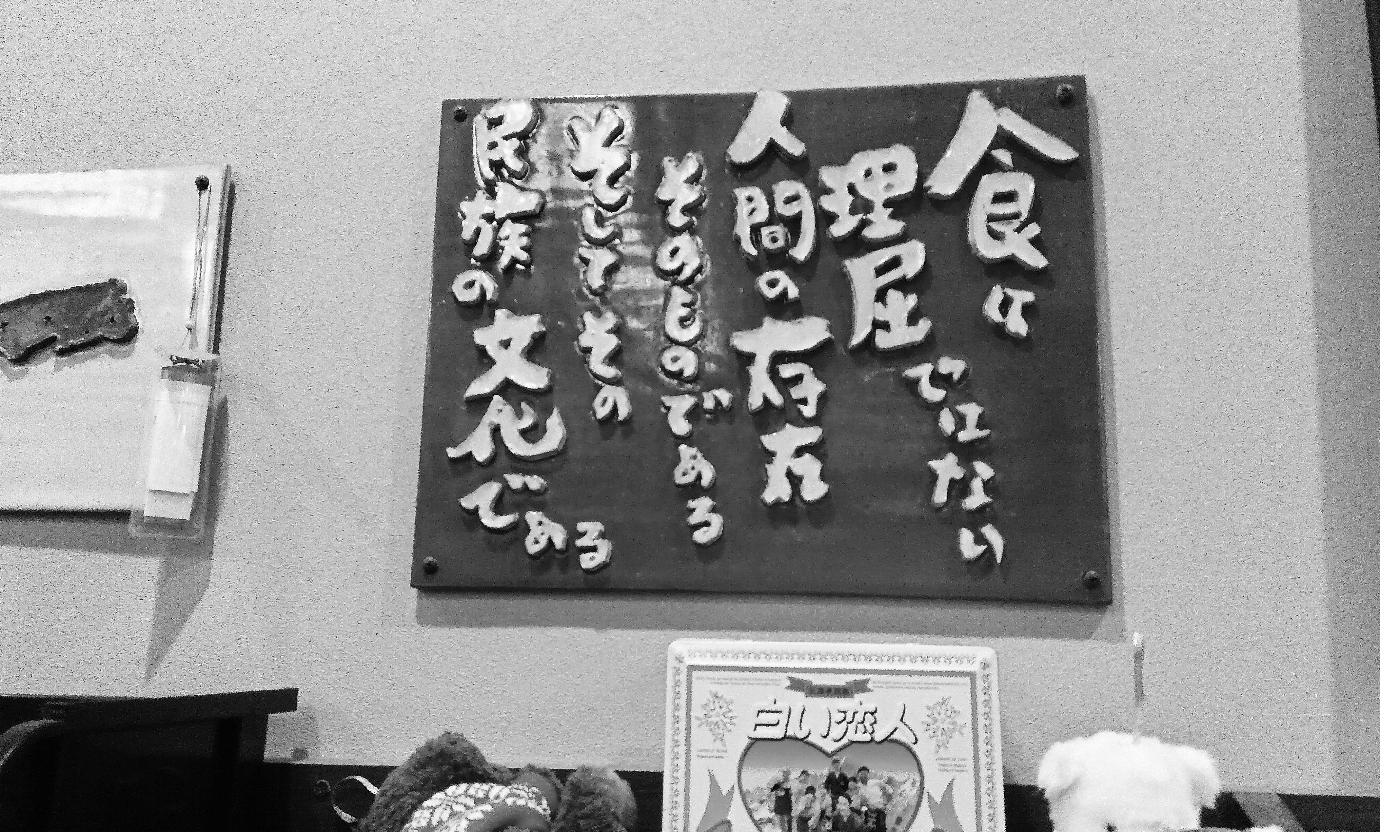 食は
理屈
ではない
人間の存在
そのものである
そして その
民族の文化である
白い恋人